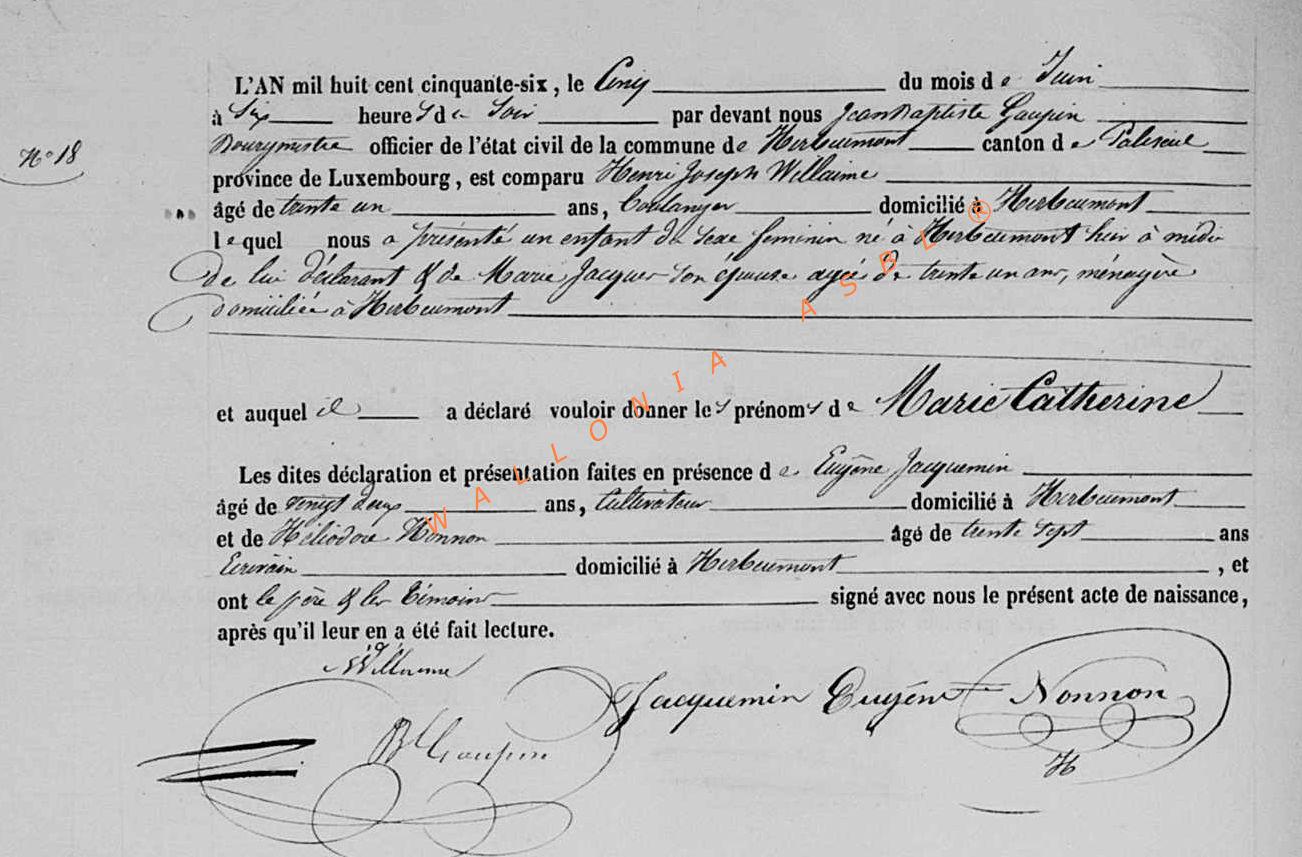 L'AN mil huit cent cinquante-six, le Cinq du mois de Juin
à Six heures de Soir par devant nous Jean Baptiste Gaupin
Bourgmestre officier de l'état civil de la commune de Herbeumont canton de Paliseul
N° 18
province de Luxembourg, est comparu Henri Joseph Willaime
âgé de trente un ans, boulanger domicilié à Herbeumont
lequel nous a présenté un enfant du sexe feminin né à Herbeumont hier à midi
de lui déclarant & de Marie Jacques son épouse agée de trente un ans, ménagère
domiciliée à Herbeumont
et auquel il a déclaré vouloir donner les prénoms de Marie Catherine
Les dites déclaration et présentation faites en présence de Eugène Jacquemin
âgé de vingt deux ans, Cultivateur domicilié à Herbeumont
et de Héliodore Nonnon âgé de trente sept ans
Ecrivain domicilié à Herbeumont, et
ont le père & les témoins signé avec nous le présent acte de naissance,
après qu'il leur en a été fait lecture.
Willaume
Jacquemin Eugène Nonnon
B Gaupin
H
WALLONIA ASBL ®